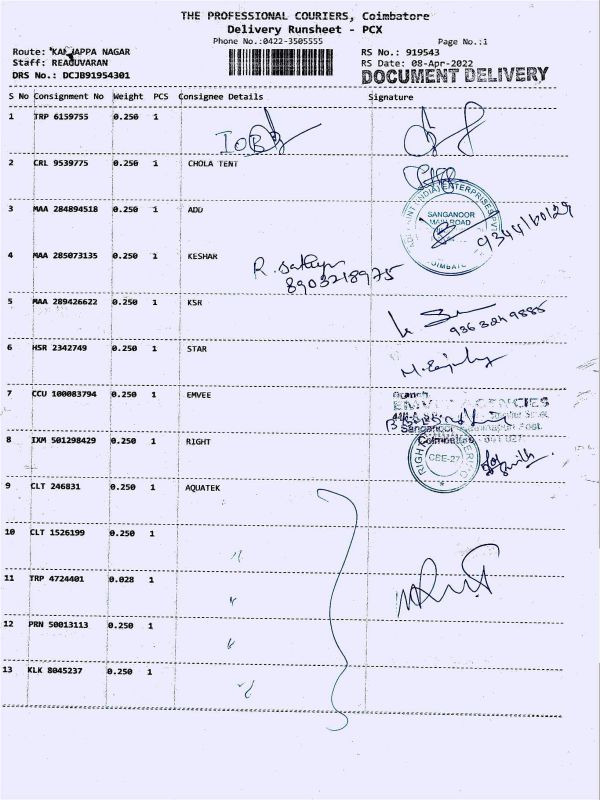 THE PROFESSIONAL COURIERS, Coimbatore
Delivery Runsheet - PCX
Phone No.:0422-3505555
Page No.:1
Route: KANJAPPA NAGAR
RS No.: 919543
Staff: REAGUVARAN
RS Date: 08-Apr-2022
DRS No.: DCJB91954301
DOCUMENT DELIVERY
S No Consignment No Weight PCS Consignee Details Signature
1 TRP 6159755 0.250 1 IOB
2 CRL 9539775 0.250 1 CHOLA TENT
3 MAA 284894518 0.250 1 ADD
(INDIA) ENTERPRISES
SANGANOOR
MAIN ROAD
9344160129
4 MAA 285073135 0.250 1 KESHAR
8903218975
5 MAA 289426622 0.250 1 KSR
9363249885
6 HSR 2342749 0.250 1 STAR
7 CCU 100083794 0.250 1 EMVEE
AGENCIES
Sanganoor
Coimbatore - 641 027
8 IXM 501298429 0.250 1 RIGHT
RIGHT
CBE-27
9 CLT 246831 0.250 1 AQUATEK
10 CLT 1526199 0.250 1 "
11 TRP 4724401 0.028 1 "
12 PRN 50013113 0.250 1 "
13 KLK 8045237 0.250 1 "